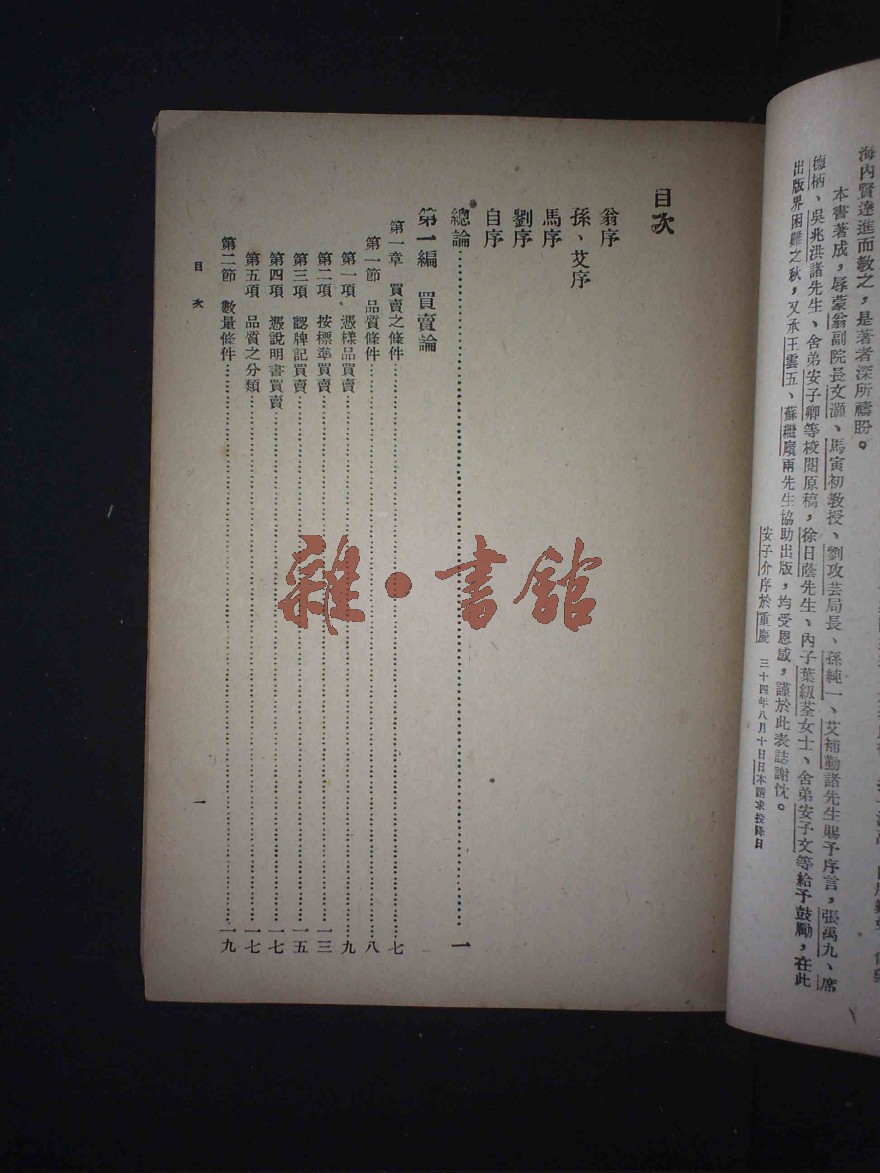 海內賢達進而教之，是著者深所禱盼。
本書著成，辱蒙翁副院長文灝、馬寅初教授、劉攻芸局長、孫純一、艾補勤諸先生賜予序言，張禹九、席
德柄、吳兆洪諸先生、舍弟安子卿等校閱原稿，徐日蔭先生、內子葉級荃女士、舍弟安子文等給予鼓勵，在此
出版界困難之秋，又承王雲五、蘇繼廎兩先生協助出版，均受恩感，謹於此表誌謝忱。
安子介序於重慶 三十四年八月十日日本請求投降日
目次
翁序
孫、艾序
馬序
劉序
自序
總論 一
第一編 買賣論
第一章 買賣之條件 七
第一節 品質條件 八
第一項 憑樣品買賣 九
第二項 按標準買賣 一三
第三項 認牌記買賣 一五
第四項 憑說明書買賣 一七
第五項 品質之分類 一七
第二節 數量條件 一九
目次 一
雜·書館